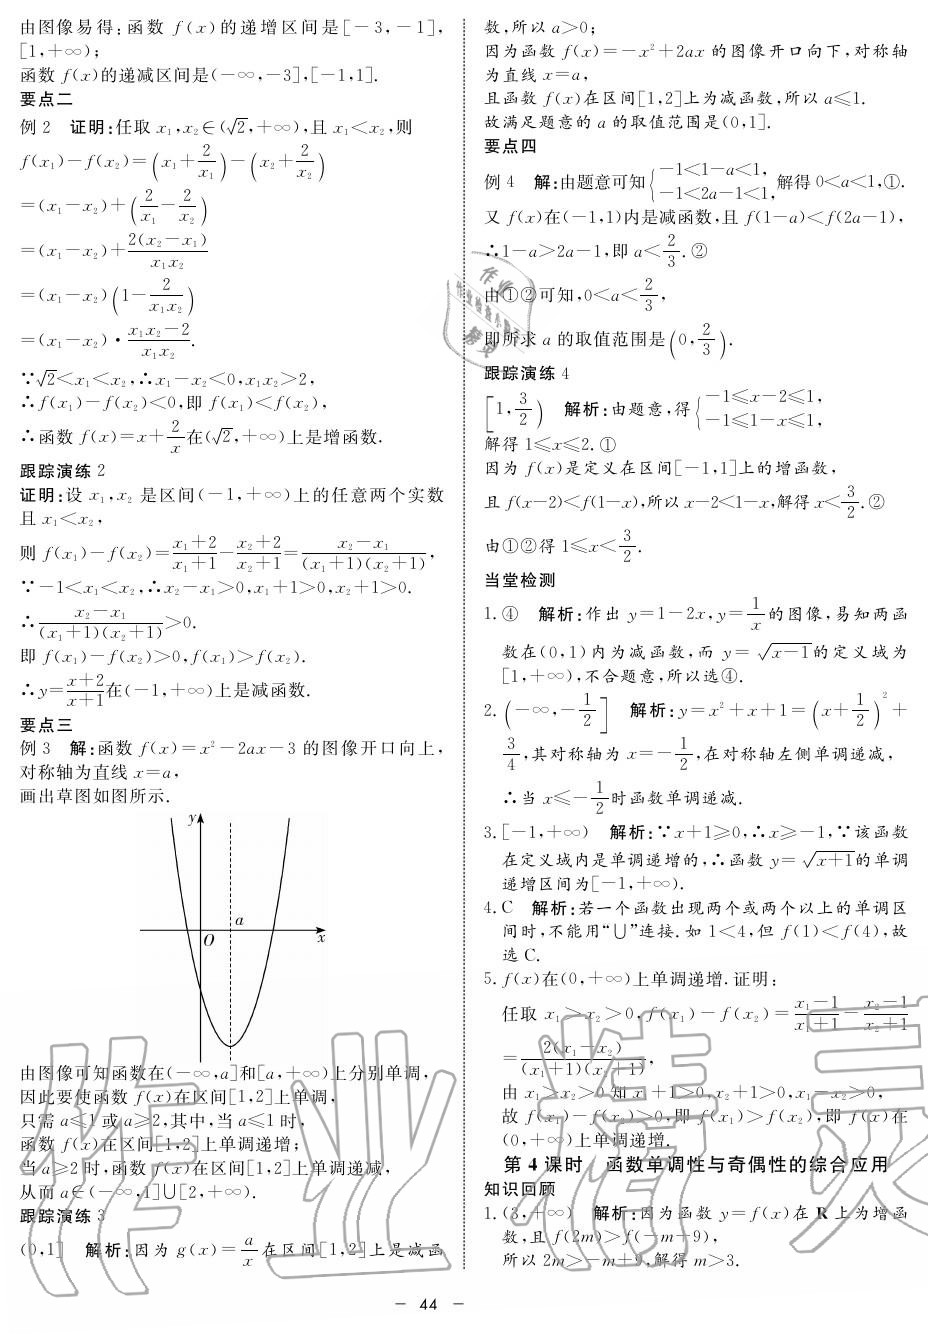 由图像易得:函数 f(x)的递增区间是[-3,-1],
[1,+∞);
函数 f(x)的递减区间是(-∞,-3],[-1,1].
要点二
例 2 证明:任取 x₁,x₂∈(√2,+∞),且 x₁<x₂,则
f(x₁)-f(x₂)=(x₁+2/x₁)-(x₂+2/x₂)
=(x₁-x₂)+(2/x₁-2/x₂)
=(x₁-x₂)+2(x₂-x₁)/x₁x₂
=(x₁-x₂)(1-2/x₁x₂)
=(x₁-x₂)·(x₁x₂-2)/x₁x₂.
∵√2<x₁<x₂,∴x₁-x₂<0,x₁x₂>2,
∴f(x₁)-f(x₂)<0,即 f(x₁)<f(x₂),
∴函数 f(x)=x+2/x在(√2,+∞)上是增函数.
跟踪演练 2
证明:设 x₁,x₂ 是区间(-1,+∞)上的任意两个实数
且 x₁<x₂,
则 f(x₁)-f(x₂)=(x₁+2)/(x₁+1)-(x₂+2)/(x₂+1)=(x₂-x₁)/(x₁+1)(x₂+1),
∵-1<x₁<x₂,∴x₂-x₁>0,x₁+1>0,x₂+1>0.
∴(x₂-x₁)/(x₁+1)(x₂+1)>0.
即 f(x₁)-f(x₂)>0,f(x₁)>f(x₂).
∴y=(x+2)/(x+1)在(-1,+∞)上是减函数.
要点三
例 3 解:函数 f(x)=x²-2ax-3 的图像开口向上,
对称轴为直线 x=a,
画出草图如图所示.
y
a
O
x
由图像可知函数在(-∞,a]和[a,+∞)上分别单调,
因此要使函数 f(x)在区间[1,2]上单调,
只需 a≤1 或 a≥2,其中,当 a≤1 时,
函数 f(x)在区间[1,2]上单调递增;
当 a≥2 时,函数 f(x)在区间[1,2]上单调递减,
从而 a∈(-∞,1]∪[2,+∞).
跟踪演练 3
(0,1] 解析:因为 g(x)=a/x 在区间[1,2]上是减函
数,所以 a>0;
因为函数 f(x)=-x²+2ax 的图像开口向下,对称轴
为直线 x=a,
且函数 f(x)在区间[1,2]上为减函数,所以 a≤1.
故满足题意的 a 的取值范围是(0,1].
要点四
例 4 解:由题意可知{-1<1-a<1, -1<2a-1<1, 解得 0<a<1,①.
又 f(x)在(-1,1)内是减函数,且 f(1-a)<f(2a-1),
∴1-a>2a-1,即 a<2/3.②
由①②可知,0<a<2/3,
即所求 a 的取值范围是(0,2/3).
跟踪演练 4
[1,3/2) 解析:由题意,得{-1≤x-2≤1, -1≤1-x≤1,
解得 1≤x≤2.①
因为 f(x)是定义在区间[-1,1]上的增函数,
且 f(x-2)<f(1-x),所以 x-2<1-x,解得 x<3/2.②
由①②得 1≤x<3/2.
当堂检测
1.④ 解析:作出 y=1-2x,y=1/x的图像,易知两函
数在(0,1)内为减函数,而 y=√(x-1)的定义域为
[1,+∞),不合题意,所以选④.
2.(-∞,-1/2] 解析:y=x²+x+1=(x+1/2)²+
3/4,其对称轴为 x=-1/2,在对称轴左侧单调递减,
∴当 x≤-1/2时函数单调递减.
3.[-1,+∞) 解析:∵x+1≥0,∴x≥-1,∵该函数
在定义域内是单调递增的,∴函数 y=√(x+1)的单调
递增区间为[-1,+∞).
4.C 解析:若一个函数出现两个或两个以上的单调区
间时,不能用“∪”连接.如 1<4,但 f(1)<f(4),故
选 C.
5.f(x)在(0,+∞)上单调递增.证明:
任取 x₁>x₂>0,f(x₁)-f(x₂)=(x₁-1)/(x₁+1)-(x₂-1)/(x₂+1)
=2(x₁-x₂)/(x₁+1)(x₂+1),
由 x₁>x₂>0 知 x₁+1>0,x₂+1>0,x₁-x₂>0,
故 f(x₁)-f(x₂)>0,即 f(x₁)>f(x₂),即 f(x)在
(0,+∞)上单调递增.
第 4 课时 函数单调性与奇偶性的综合应用
知识回顾
1.(3,+∞) 解析:因为函数 y=f(x)在 R 上为增函
数,且 f(2m)>f(-m+9),
所以 2m>-m+9,解得 m>3.
- 44 -
作业精灵